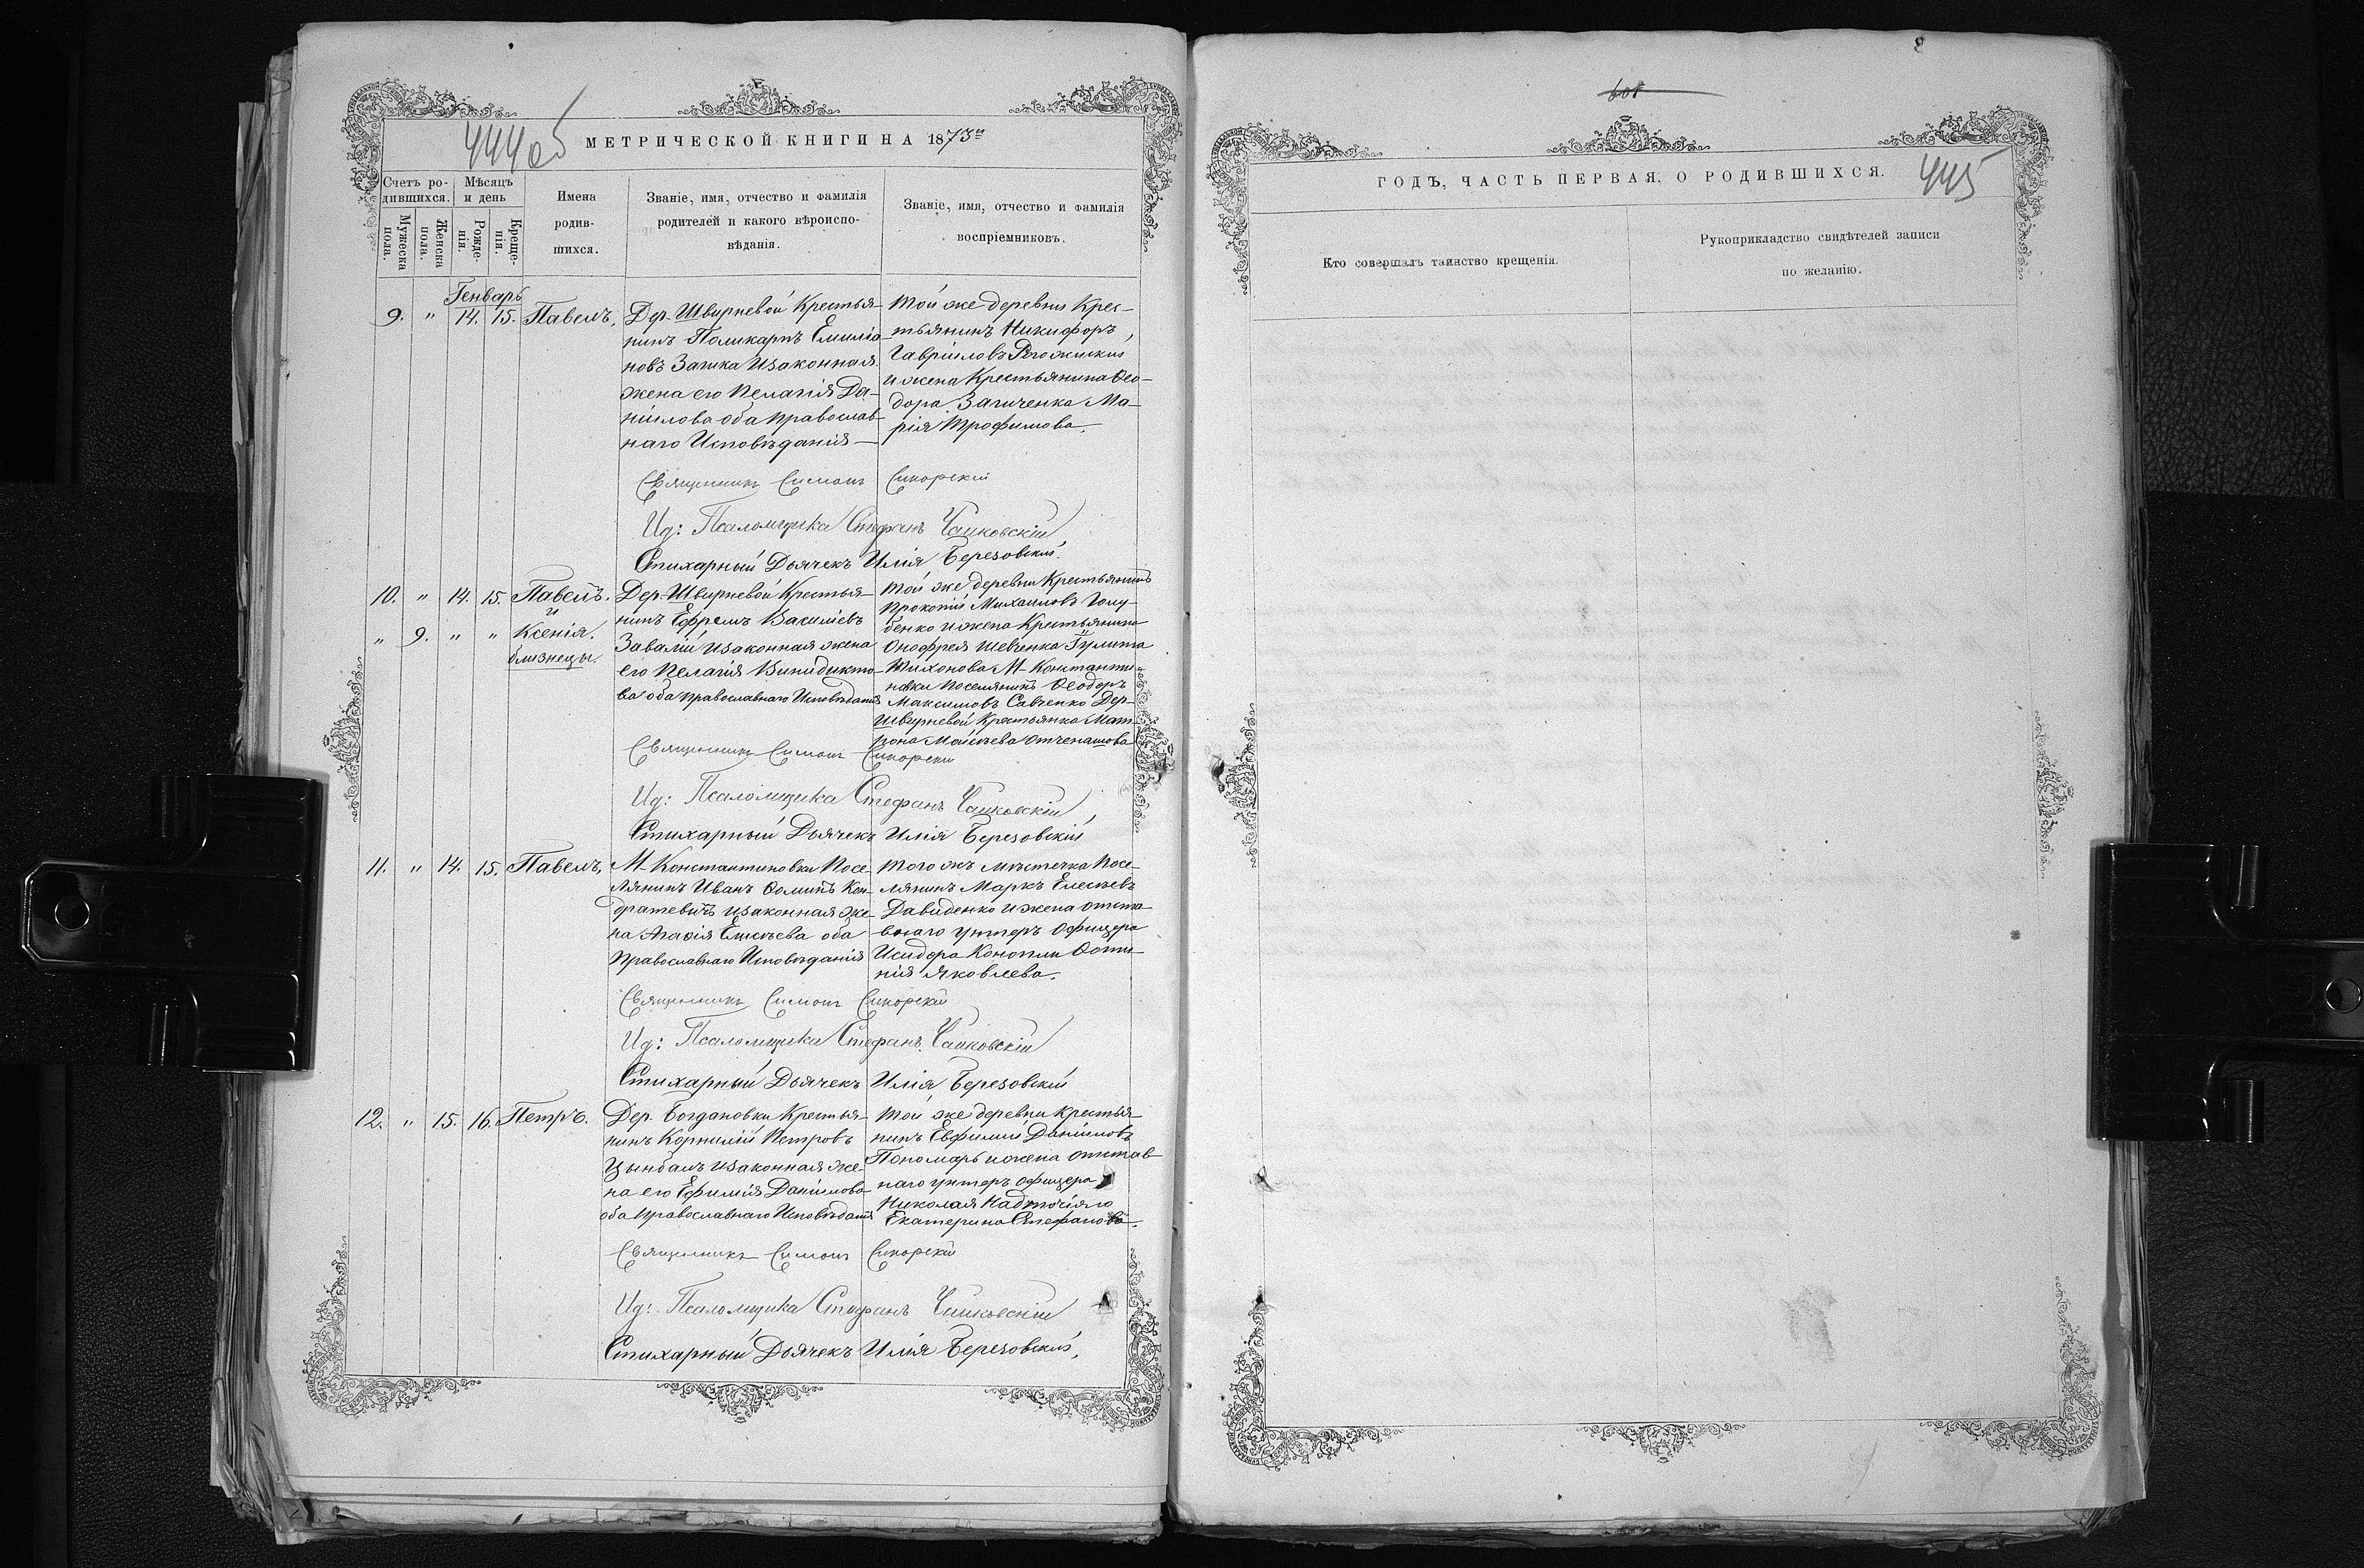 444об
МЕТРИЧЕСКОЙ КНИГИ НА 1873й
Счетъ ро-
дившихся.
Мѣсяцъ
и день
Мужеска
пола.
Женска
пола.
Рожде-
нія.
Креще-
нія.
Имена
родив-
шихся.
Званіе, имя, отчество и фамилія
родителей и какого вѣроиспо-
вѣданія.
Званіе, имя, отчество и фамилія
воспріемниковъ.
Генварь
9. " 14. 15. Павелъ,
Дер. Швирневой Крестья-
нинъ Поликарпъ Емиліа
новъ Заика изаконная
жена его Пелагія Да-
ніилова оба православ-
наго Исповѣданія
Той же деревни Крес-
тьянинъ Никифоръ
Гавріиловъ
и жена Крестьянина Ѳео-
дора Заиченка Ма-
рія Трофимова.
Священникъ Симонъ Сикорскій
Ид: Псаломщика Стефанъ Чайковскій
Стихарный Дьячекъ Илія Березовскій.
10. " 14. 15. Павелъ.
и
" 9. " " Ксенія.
близнецы.
Дер. Швирневой Крестья-
нинъ Ефремъ Василіевъ
Завалій изаконная жена
его Пелагія Винидикто-
ва оба православнаго Исповѣданія
Той же деревни Крестьянинъ
Прокопій Михаиловъ Голу-
бенко и жена Крестьянина
Онофрея Шевченка Іулита
Тихонова М. Константи-
новки поселянинъ Ѳеодоръ
Максимовъ Савченко Дер-
Швирневой Крестьянка Мат-
рона Моисѣева Отченашова
Священникъ Симонъ Сикорскій
Ид: Псаломщика Стефанъ Чайковскій
Стихарный Дьячекъ Илія Березовскій
11. " 14. 15. Павелъ,
М. Константиновки Посе-
лянинъ Иванъ Ѳоминъ Кон-
дратевичъ изаконная же-
на Агафія Елисѣева оба
Православнаго Исповѣданія
Того жъ мѣстечка Посе-
лянинъ Маркъ Елесѣевъ
Давиденко и жена отста-
внаго унтеръ Офицера
Исидора Конопли Фоти-
нія Яковлева.
Священникъ Симонъ Сикорскій
Ид: Псаломщика Стефанъ Чайковскій
Стихарный Дьячекъ Илія Березовскій
12. " 15. 16. Петръ.
Дер. Богдановки Крестья-
нинъ Корнилій Петровъ
Цынбалъ изаконная же-
на его Ефимія Даніилова
оба православнаго Исповѣданія
Той же деревни крестья
нинъ Евфимій Даніиловъ
Пономарь и жена отстав
наго унтеръ офицера
Николая Надточіяго
Екатерина Стефанова.
Священникъ Симонъ Сикорскій
Ид: Псаломщика Стефанъ Чайковскій
Стихарный Дьячекъ Илія Березовскій,
445
ГОДЪ, ЧАСТЬ ПЕРВАЯ, О РОДИВШИХСЯ.
Кто совершалъ таинство крещенія.
Рукоприкладство свидѣтелей записи
по желанію.